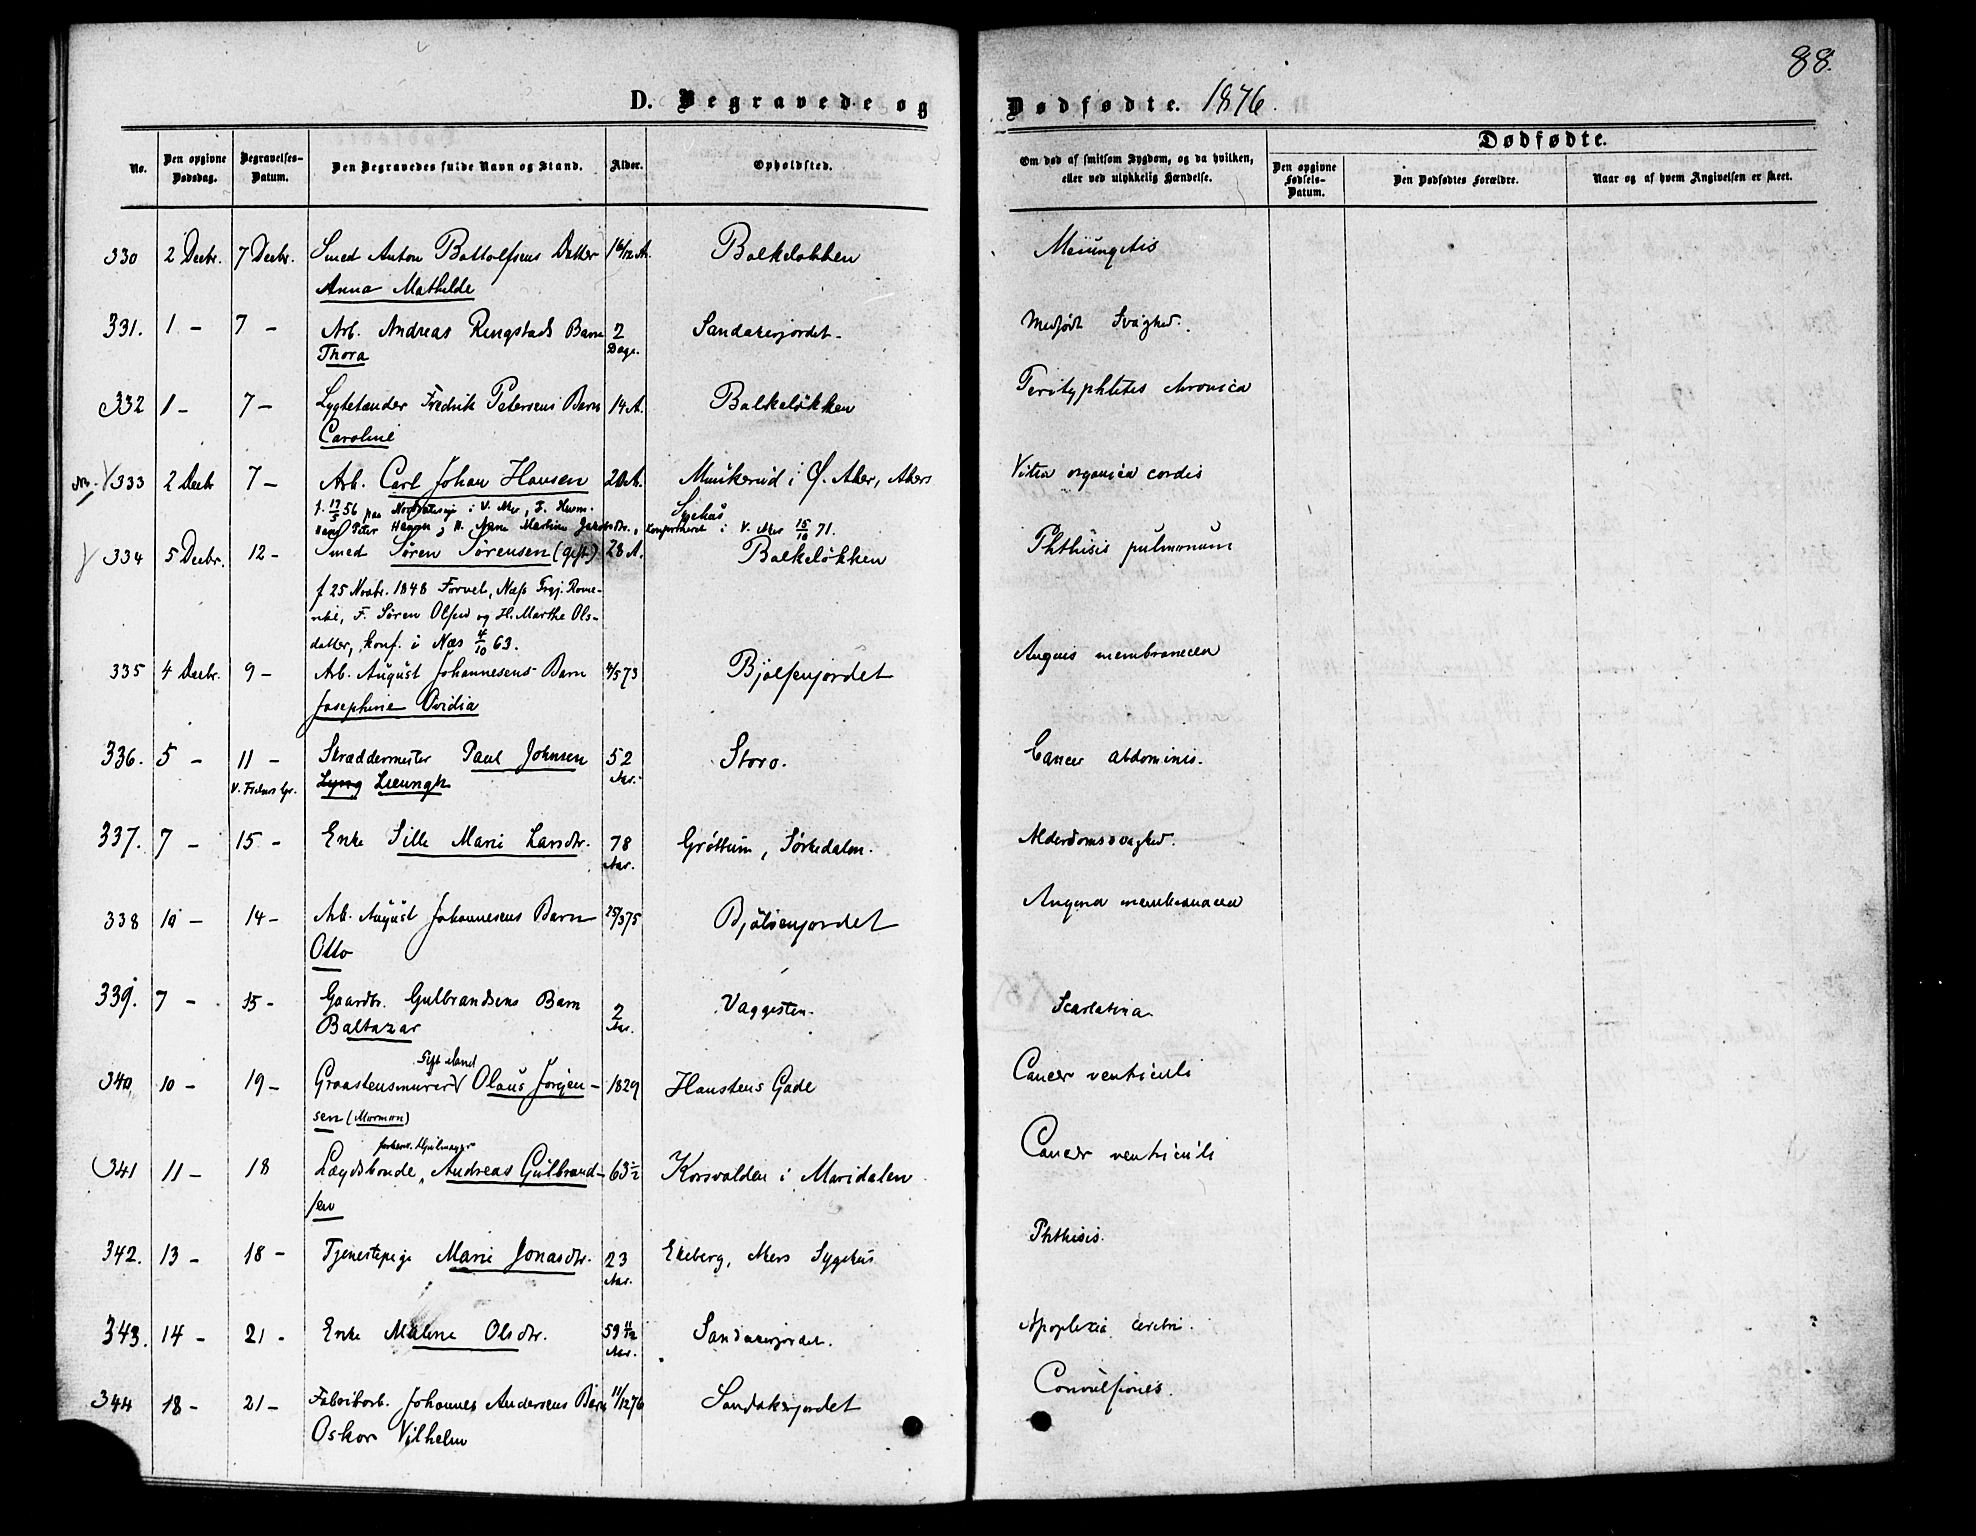 88.
D. Begravede og Dødfødte. 1876.
No.
Den opgivne Dødsdag.
Begravelses-Datum.
Den Begravedes fulde Navn og Stand.
Alder.
Opholdsted.
Om død af smitsom Sygdom, og da hvilken, eller ved ulykkelig Hændelse.
Dødfødte.
Den opgivne Fødsels-Datum.
Den Dødfødtes Forældre.
Naar og af hvem Angivelsen er skeet.
330 2 Decbr. 7 Decbr. Smed Anton Bottolfsens Datter Balkeløkken
Anna Mathilde
331. 1 - 7 - Arb. Andreas Ringstads Barn 2 Sandakerjordet. Medfødt Svaghed.
Thora Dage.
332 1 - 7 - Lygtetænder Fredrik Petersens Barn 14 A. Balkeløkken
Caroline
333 2 Decbr 7 - Arb. Carl Johan Hansen 20 A. i Ø. Aker, Akers Vitia organica cordis
Sygehus
i V. Aker 15/10 71.
334 5 Decbr. 12 - Smed Søren Sørensen (gift) 28 A. Balkeløkken Phthisis pulmonum
f 25 Novbr. 1848 Forvel, Næs Prgj. Rome-
rike, F. Søren Olsen og H. Marthe Ols-
datter, konf. i Næs 4/10 63.
335 4 Decbr. 9 - Arb. August Johannesens Barn 4/5 73 Bjølsenjordet Angina membranacea
Josephine Ovidia
336. 5 - 11 - Skræddermester Paul Johnsen 52 Storo. Cancer abdominis.
V. Frelsers Gr. Lyng Lieungh Aar.
337. 7 - 15 - Enke Sille Marie Larsdtr. 78 Grøttum, Sørkedalen. Alderdomssvaghed.
Aar.
338 10 - 14 - Arb. August Johannesens Barn 25/3 75 Bjølsenjordet Angina membranacea
Otto
339. 7 - 15 - Gaardbr. Gulbrandsens Barn 2 Vaggesten. Scarlatina
Baltazar Aar.
gift Mand
340, 10 - 19 - Graastensmurer Olaus Jørgen- 1829 Hanstens Gade Cancer ventriculi
sen (Mormon)
341 11 - 18 Lægdsbonde, Andreas Gulbrand- 63 1/2 Korsvolden i Maridalen Cancer ventriculi
sen
342. 13 - 18 - Tjenestepige Marie Jonasdtr. 23 Ekeberg, Akers Sygehus Phthisis.
Aar.
343. 14 - 21 - Enke Malene Olsdtr. Sandakerjordet. Apoplexia cerebri.
Aar.
344 18 - 21 - Fabrikarb. Johannes Andersens Barn 11/12 76 Sandakerjordet Convulsiones.
Oskar Vilhelm